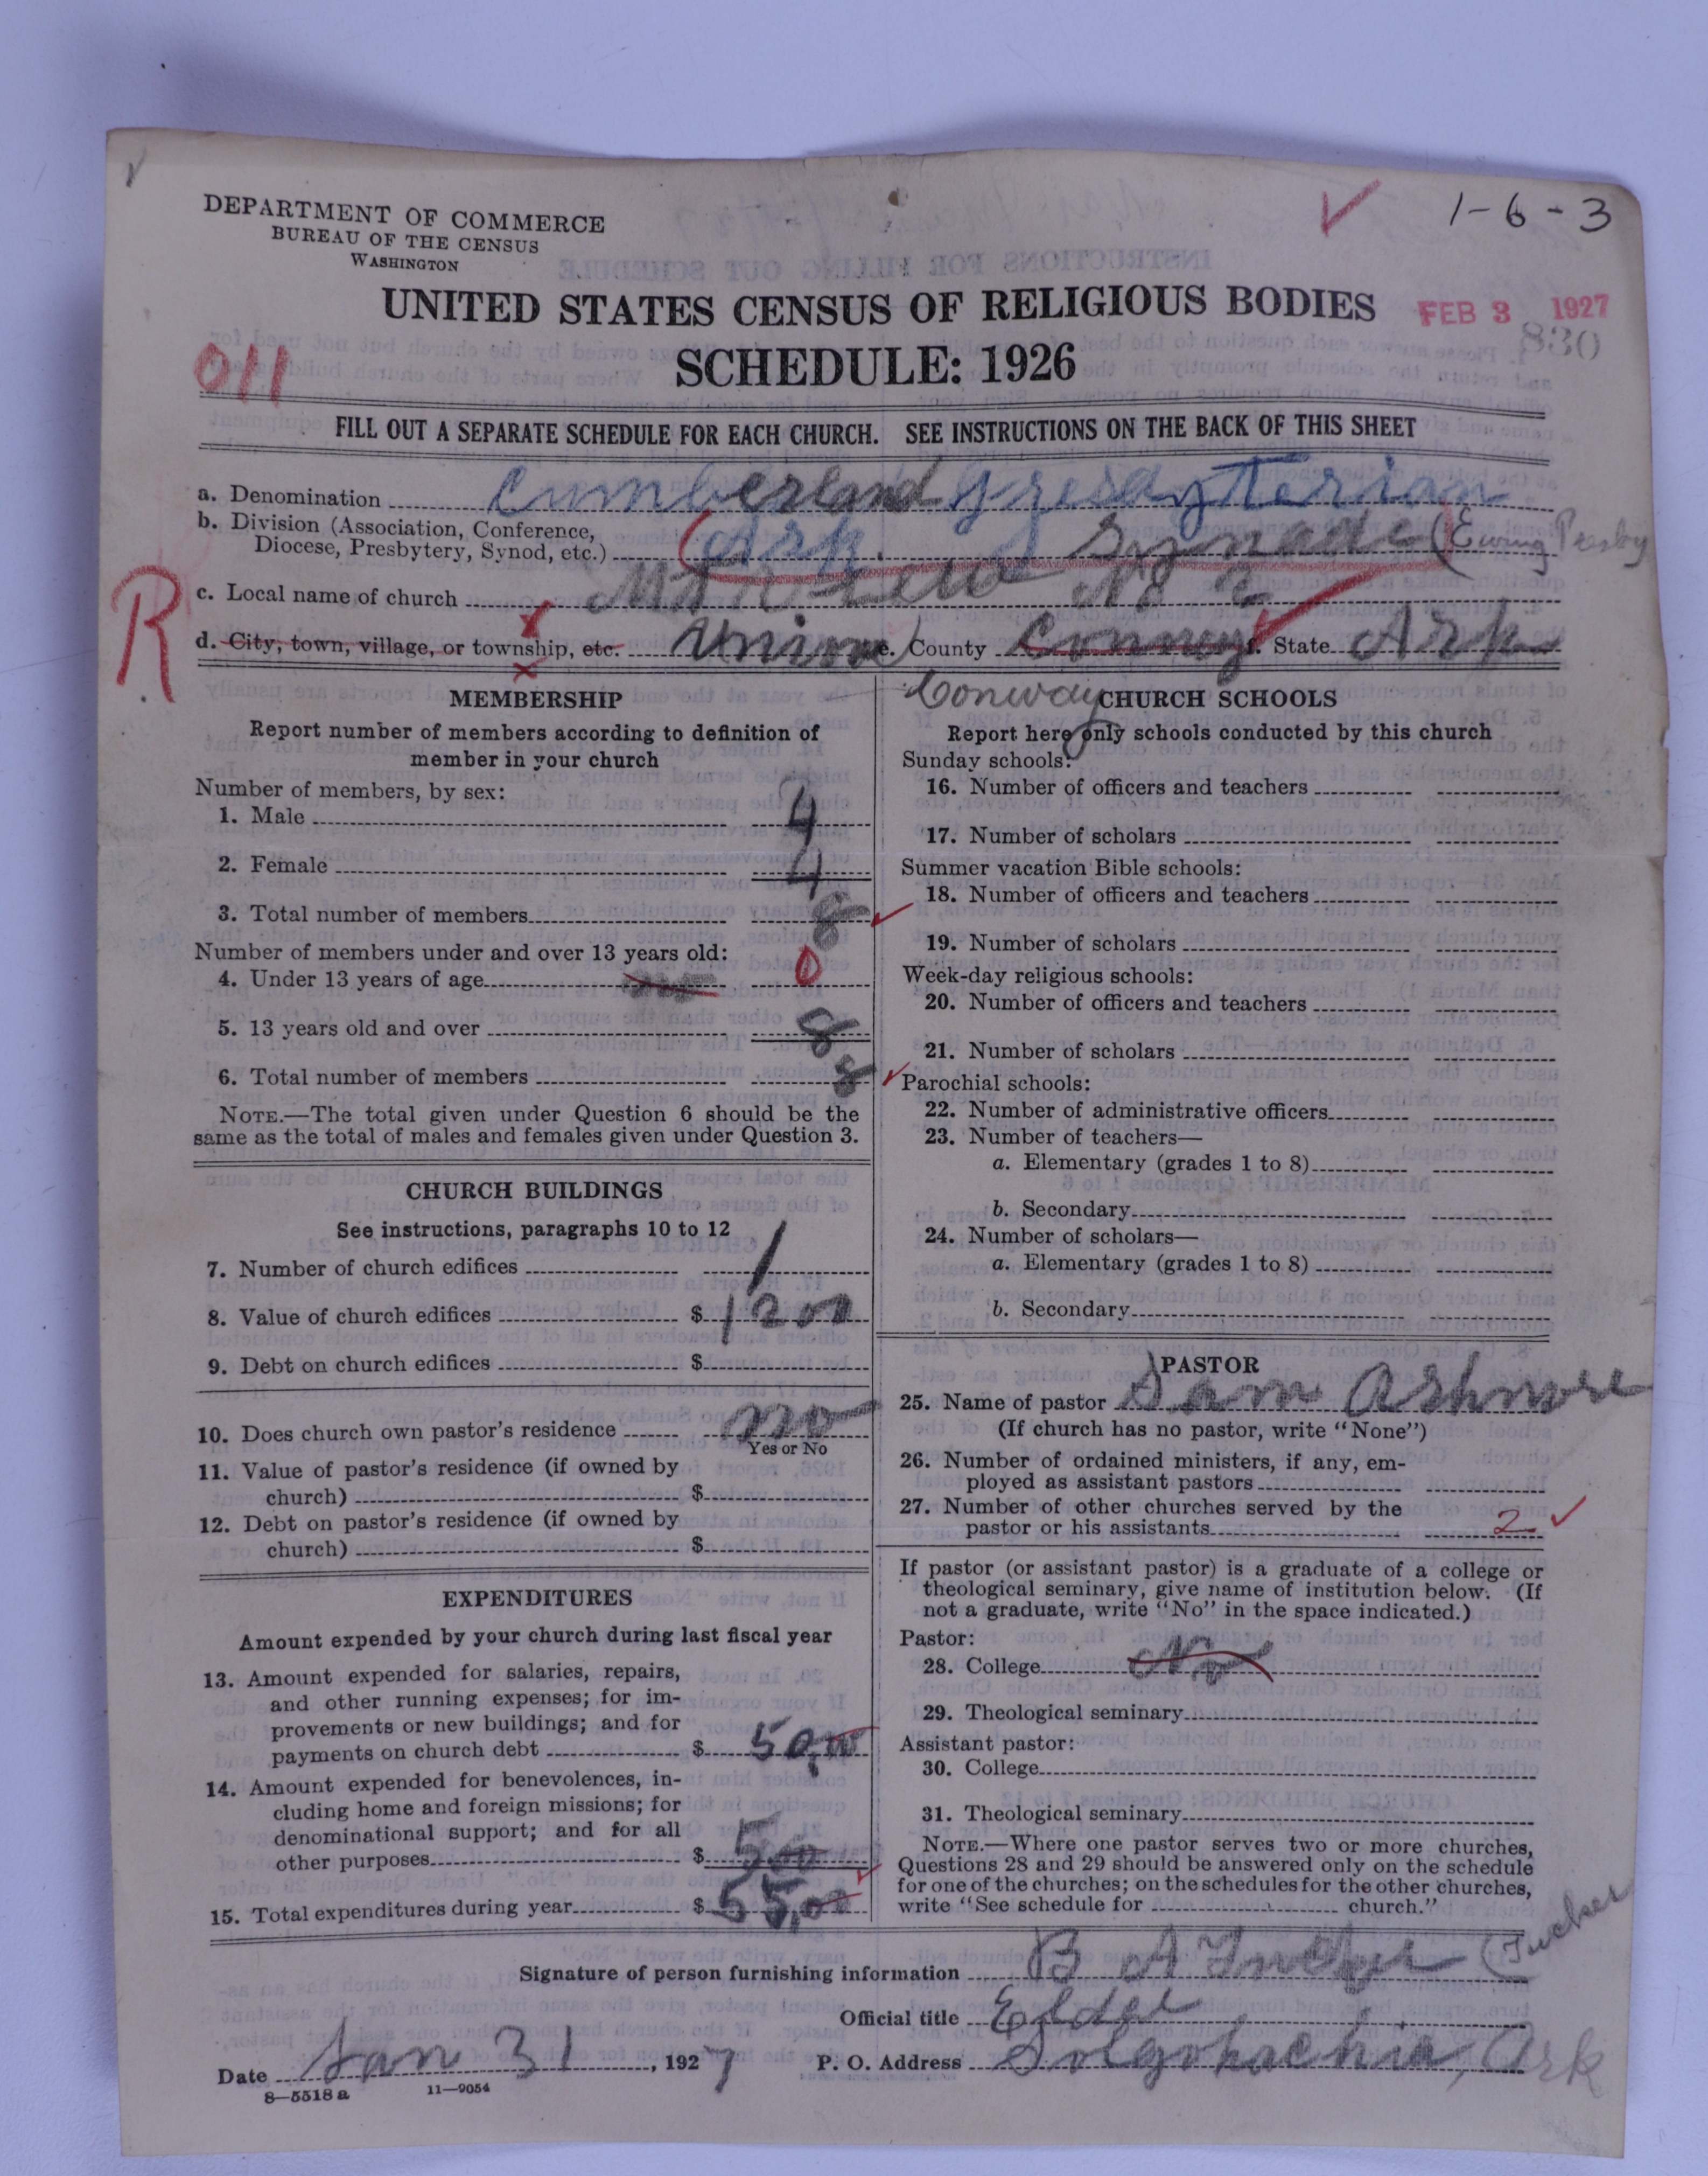 1-6-3
DEPARTMENT OF COMMERCE
BUREAU OF THE CENSUS
WASHINGTON
UNITED STATES CENSUS OF RELIGIOUS BODIES
FEB 3 1927
830
SCHEDULE: 1926
011
FILL OUT A SEPARATE SCHEDULE FOR EACH CHURCH. SEE INSTRUCTIONS ON THE BACK OF THIS SHEET
a. Denomination Cumberland Presbyterian
b. Division (Association, Conference,
Diocese, Presbytery, Synod, etc.) Ark. Synade (Ewing Presby
c. Local name of church Mt View No 2
R
d. City, town, village, or township, etc. Union e. County Conway f. State Ark
Conway
MEMBERSHIP
Report number of members according to definition of
member in your church
Number of members, by sex:
1. Male 4
2. Female 4
3. Total number of members 8
Number of members under and over 13 years old:
4. Under 13 years of age 0
5. 13 years old and over 8
6. Total number of members 8
NOTE.—The total given under Question 6 should be the
same as the total of males and females given under Question 3.
CHURCH BUILDINGS
See instructions, paragraphs 10 to 12
7. Number of church edifices 1
8. Value of church edifices $ 1200
9. Debt on church edifices $
10. Does church own pastor's residence no
Yes or No
11. Value of pastor's residence (if owned by
church) $
12. Debt on pastor's residence (if owned by
church) $
EXPENDITURES
Amount expended by your church during last fiscal year
13. Amount expended for salaries, repairs,
and other running expenses; for im-
provements or new buildings; and for
payments on church debt $ 50,00
14. Amount expended for benevolences, in-
cluding home and foreign missions; for
denominational support; and for all
other purposes $ 500
15. Total expenditures during year $ 55,00
CHURCH SCHOOLS
Report here only schools conducted by this church
Sunday schools:
16. Number of officers and teachers
17. Number of scholars
Summer vacation Bible schools:
18. Number of officers and teachers
19. Number of scholars
Week-day religious schools:
20. Number of officers and teachers
21. Number of scholars
Parochial schools:
22. Number of administrative officers
23. Number of teachers—
a. Elementary (grades 1 to 8)
b. Secondary
24. Number of scholars—
a. Elementary (grades 1 to 8)
b. Secondary
PASTOR
25. Name of pastor Sam Ashmore
(If church has no pastor, write "None")
26. Number of ordained ministers, if any, em-
ployed as assistant pastors
27. Number of other churches served by the
pastor or his assistants 2
If pastor (or assistant pastor) is a graduate of a college or
theological seminary, give name of institution below. (If
not a graduate, write "No" in the space indicated.)
Pastor:
28. College No
29. Theological seminary
Assistant pastor:
30. College
31. Theological seminary
NOTE.—Where one pastor serves two or more churches,
Questions 28 and 29 should be answered only on the schedule
for one of the churches; on the schedules for the other churches,
write "See schedule for church."
Signature of person furnishing information B A Tucker (Tucker
Official title Elder
Date Jan 31, 1927 P. O. Address Solgohachia, Ark
8—5518 a 11—9054